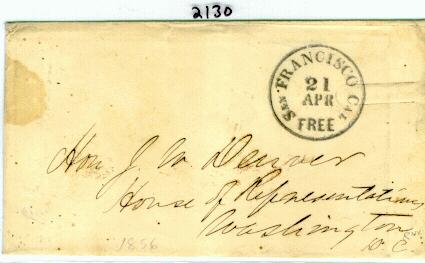 2130
SAN FRANCISCO CAL
21
APR
FREE
Hon J W Denver
House of Representatives
Washington
D. C.
1856